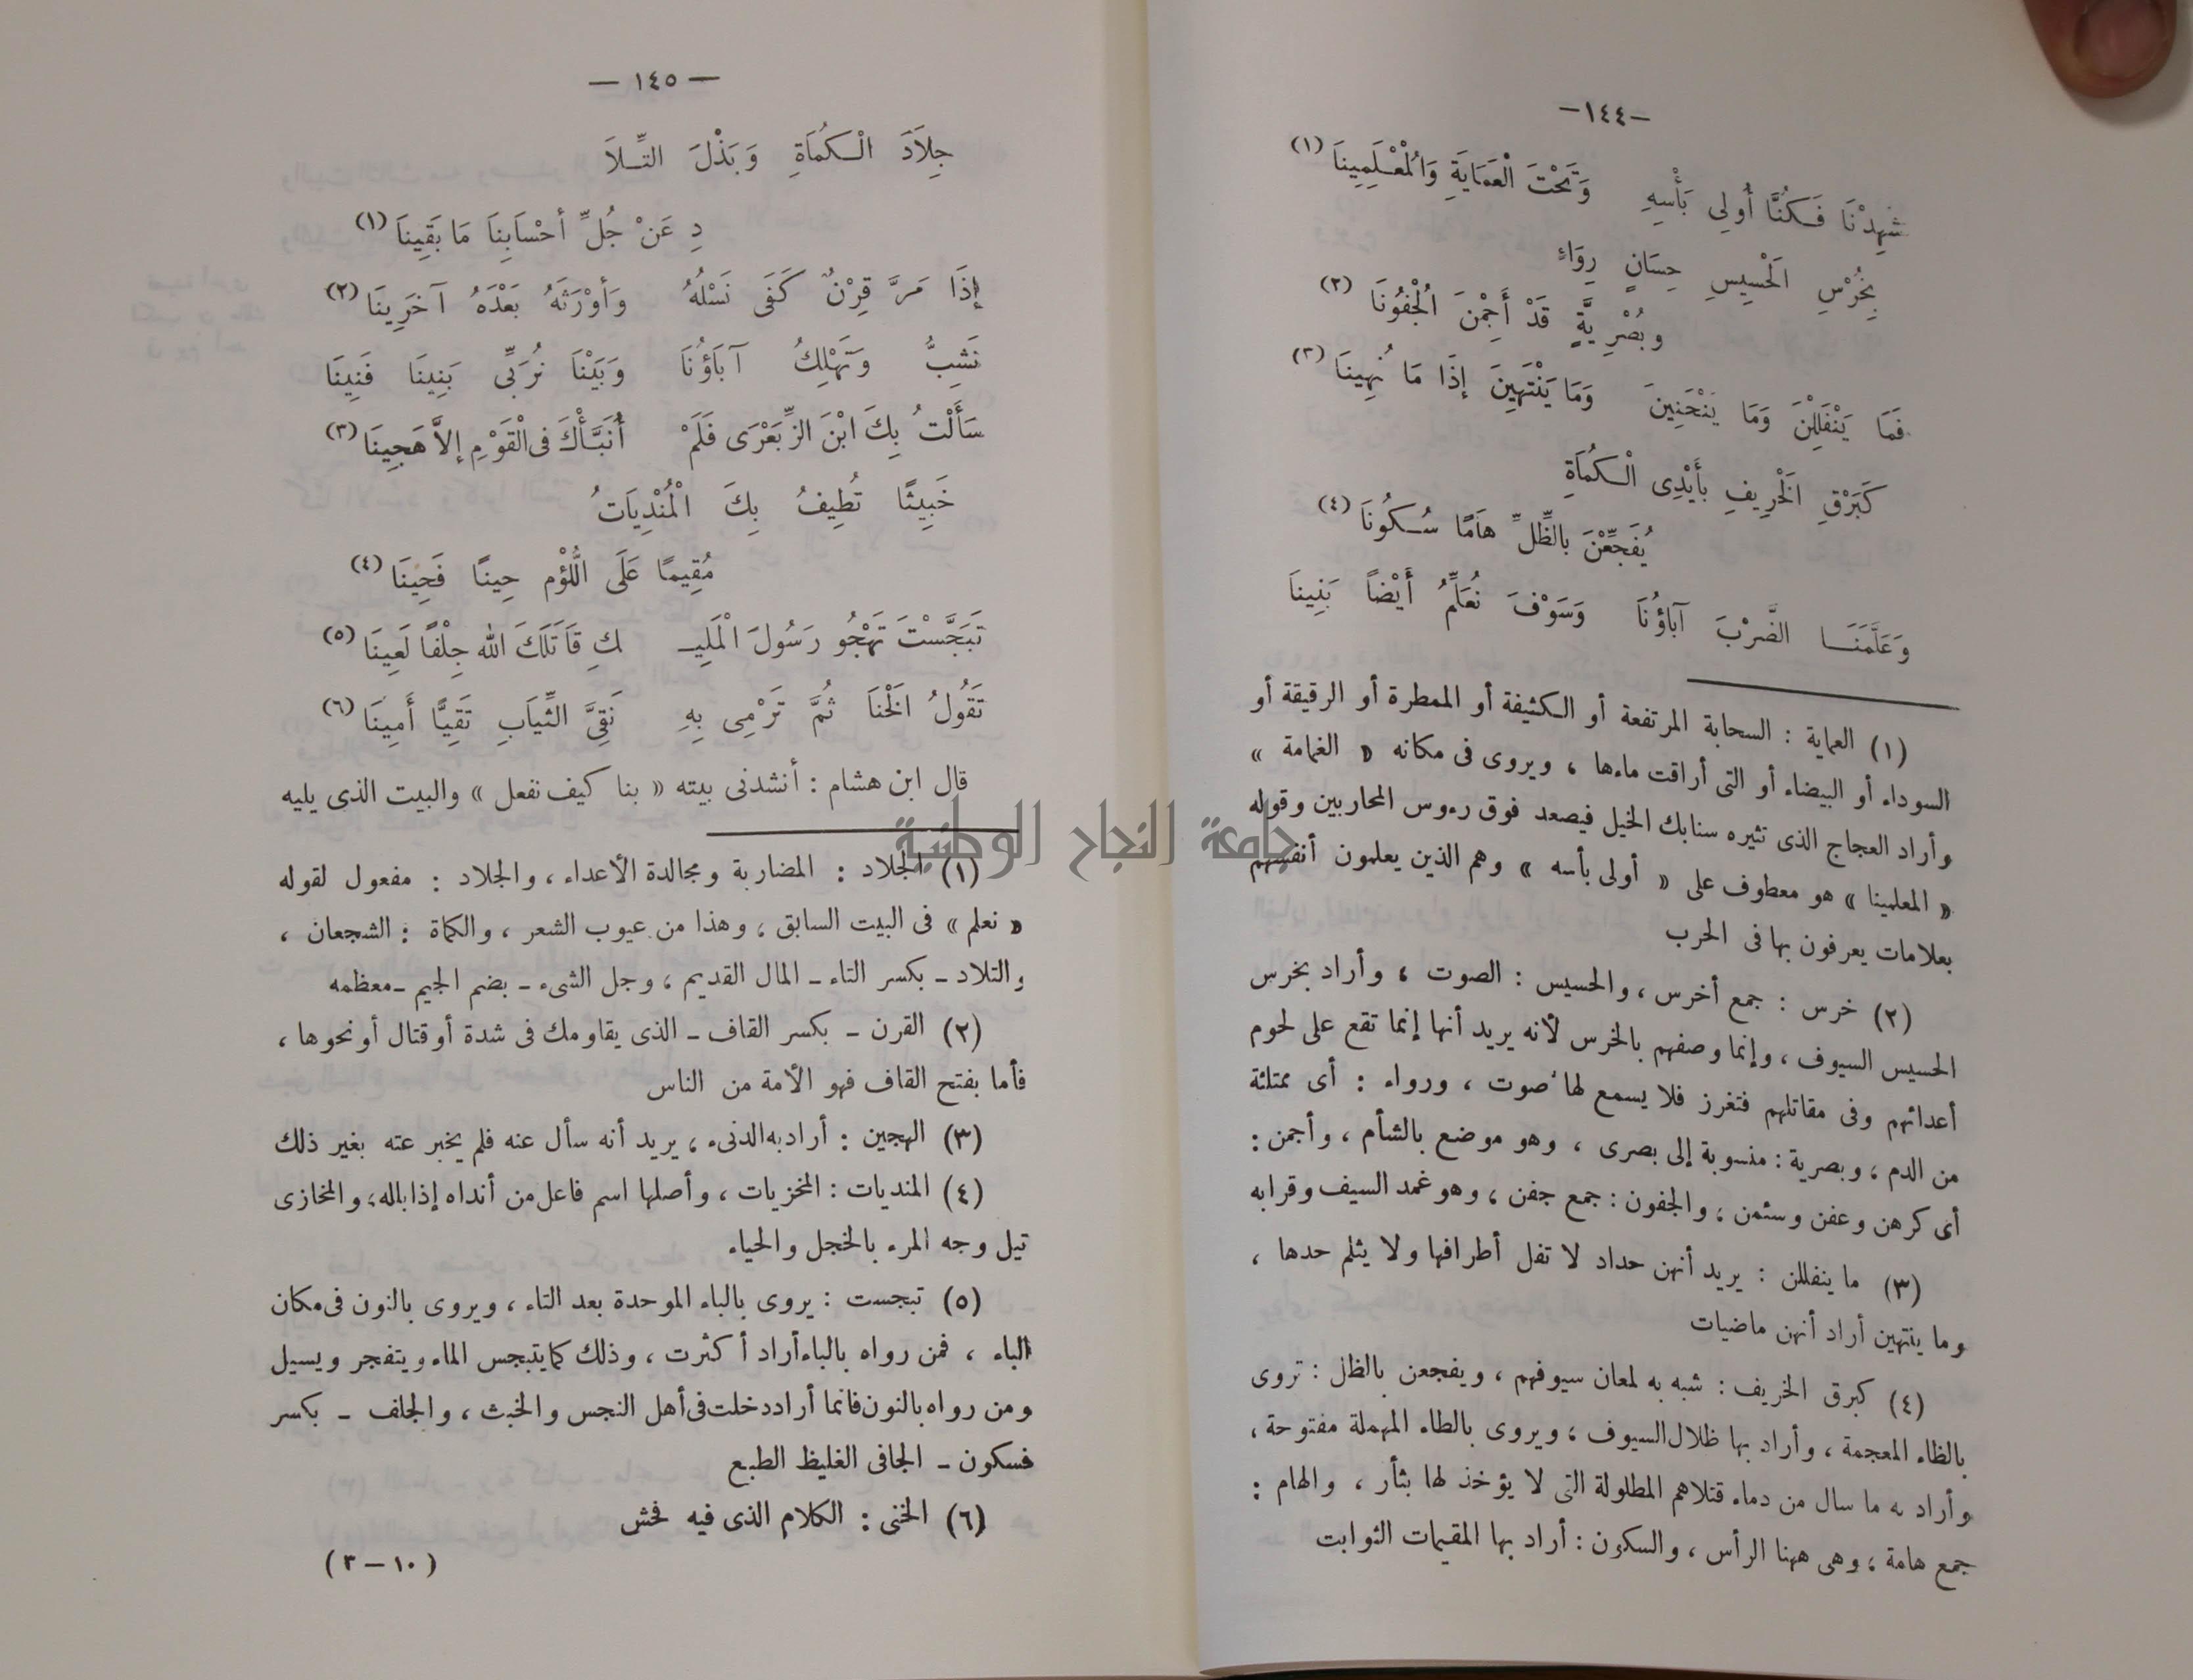 —١٤٤—
شَهِدْنَا فَكُنَّا أُولِى بَأْسِهِ وَتَحْتَ الْعَمَايَةِ وَالْمُعْلَمِينَا (١)
بِخُرْسِ الْحَسِيسِ حِسَانٍ رِوَاءٍ
وبُصْرِيَّةٍ قَدْ أَجِمْنَ الْجُفُونَا (٢)
فَمَا يَنْفَلِلْنَ وَمَا يَنْحَنِينَ وَمَا يَنْتَهِينَ إذَا مَا نُهِينَا (٣)
كَبَرْقِ الْخَرِيفِ بِأَيْدِى الْكُمَاةِ
يُفَجِّعْنَ بالظِّلِّ هَامًا سُكُونَا (٤)
وَعَلَّمَنَا الضَّرْبَ آبَاؤُنَا وَسَوْفَ نُعَلِّمُ أَيْضاً بَنِينَا
(١) العماية : السحابة المرتفعة أو الكثيفة أو الممطرة أو الرقيقة أو
السوداء أو البيضاء أو التى أراقت ماءها ، ويروى فى مكانه « الغمامة »
وأراد العجاج الذى تثيره سنابك الخيل فيصعد فوق رءوس المحاربين وقوله
« المعلمينا » هو معطوف على « أولى بأسه » وهم الذين يعلمون أنفسهم
بعلامات يعرفون بها فى الحرب
(٢) خرس : جمع أخرس ، والحسيس : الصوت ، وأراد بخرس
الحسيس السيوف ، وإنما وصفهم بالخرس لأنه يريد أنها إنما تقع على لحوم
أعدائهم وفى مقاتلهم فتغرز فلا يسمع لها صوت ، ورواء : أى ممتلئة
من الدم ، وبصرية : منسوبة إلى بصرى ، وهو موضع بالشأم ، وأجمن :
أى كرهن وعفن وسئمن ، والجفون : جمع جفن ، وهو غمد السيف وقرابه
(٣) ما ينفللن : يريد أنهن حداد لا تفل أطرافها ولا يثلم حدها ،
وما ينتهين أراد أنهن ماضيات
(٤) كبرق الخريف : شبه به لمعان سيوفهم ، ويفجعن بالظل : تروى
بالظاء المعجمة ، وأراد بها ظلال السيوف ، ويروى بالطاء المهملة مفتوحة ،
وأراد به ما سال من دماء قتلاهم المطلولة التى لا يؤخذ لها بثأر ، والهام :
جمع هامة ، وهى ههنا الرأس ، والسكون : أراد بها المقيمات الثوابت
— ١٤٥ —
جِلَادَ الْكُمَاةِ وَبَذْلَ التِّلَا
دِ عَنْ جُلِّ أحْسَابِنَا مَا بَقِينَا (١)
إذَا مَرَّ قِرْنٌ كَفَى نَسْلُهُ وَأوْرَثَهُ بَعْدَهُ آخَرِينَا (٢)
نَشِبُّ وَتَهْلِكُ آبَاؤُنَا وَبَيْنَا نُرَبِّى بَنِينَا فَنِينَا
سَأَلْتُ بِكَ ابْنَ الزِّبَعْرَى فَلَمْ أُنَبَّأْكَ فى الْقَوْمِ إلَّا هَجِينَا (٣)
خَبِيثًا تُطِيفُ بِكَ الْمُنْدِيَاتُ
مُقِيمًا عَلَى اللُّؤْمِ حِينًا فَحِينَا (٤)
تَبَجَّسْتَ تَهْجُو رَسُولَ الْمَلِيـ ـكِ قَاتَلَكَ الله جِلْفًا لَعِينَا (٥)
تَقُولُ الْخَنَا ثُمَّ تَرْمِى بِهِ نَقِىَّ الثِّيَابِ تَقِيًّا أَمِينَا (٦)
قال ابن هشام : أنشدنى بيته « بنا كيف نفعل » والبيت الذى يليه
جامعة النجاح الوطنية
(١) الجلاد : المضاربة ومجالدة الأعداء ، والجلاد : مفعول لقوله
« نعلم » فى البيت السابق ، وهذا من عيوب الشعر ، والكماة : الشجعان ،
والتلاد ـ بكسر التاء ـ المال القديم ، وجل الشىء ـ بضم الجيم ـ معظمه
(٢) القرن ـ بكسر القاف ـ الذى يقاومك فى شدة أو قتال أو نحوها ،
فأما بفتح القاف فهو الأمة من الناس
(٣) الهجين : أراد به الدنىء ، يريد أنه سأل عنه فلم يخبر عنه بغير ذلك
(٤) المنديات : المخزيات ، وأصلها اسم فاعل من أنداه إذا بالله ، والمخازى
تبل وجه المرء بالخجل والحياء
(٥) تبجست : يروى بالباء الموحدة بعد التاء ، ويروى بالنون فى مكان
الباء ، فمن رواه بالباء أراد أكثرت ، وذلك كما يتبجس الماء ويتفجر ويسيل
ومن رواه بالنون فانما أراد دخلت فى أهل النجس والخبث ، والجلف ـ بكسر
فسكون ـ الجافى الغليظ الطبع
(٦) الخنى : الكلام الذى فيه فحش
(١٠ — ٣)